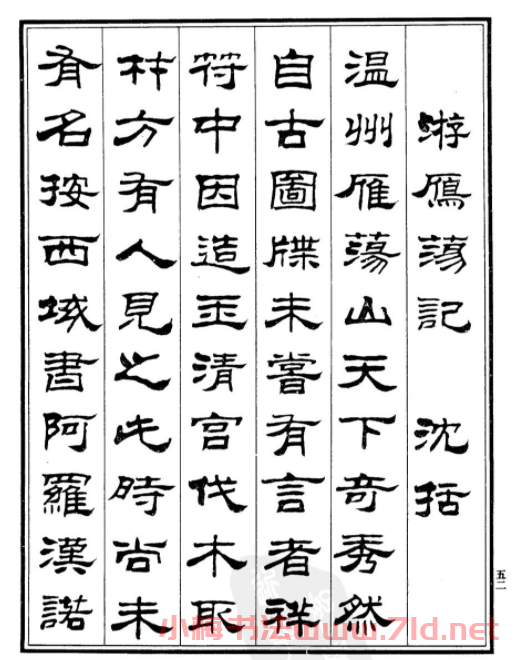 游鴈蕩記 沈括
温州雁蕩山天下奇秀然
自古圖牒未嘗有言者祥
符中因造玉清宫伐木取
材方有人見之此時尚未
有名按西域書阿羅漢諾
五二
小梅书法www.7ld.net